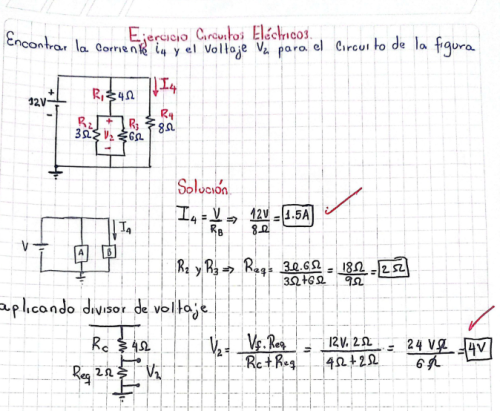 Ejercicio Circuitos Eléctricos.
Encontrar la corriente i4 y el voltaje V2 para el circuito de la figura
12V
+
-
R1 4Ω
I4
R2 3Ω
+
V2
-
R3 6Ω
R4 8Ω
Solución
I4 = V/RB ⇒ 12V/8Ω = 1.5A
V
A
B
I4
R2 y R3 ⇒ Req = 3Ω.6Ω/3Ω+6Ω = 18Ω/9Ω = 2Ω
aplicando divisor de voltaje
Rc 4Ω
Req 2Ω
V2
V2 = Vf.Req/Rc+Req = 12V.2Ω/4Ω+2Ω = 24VΩ/6Ω = 4V